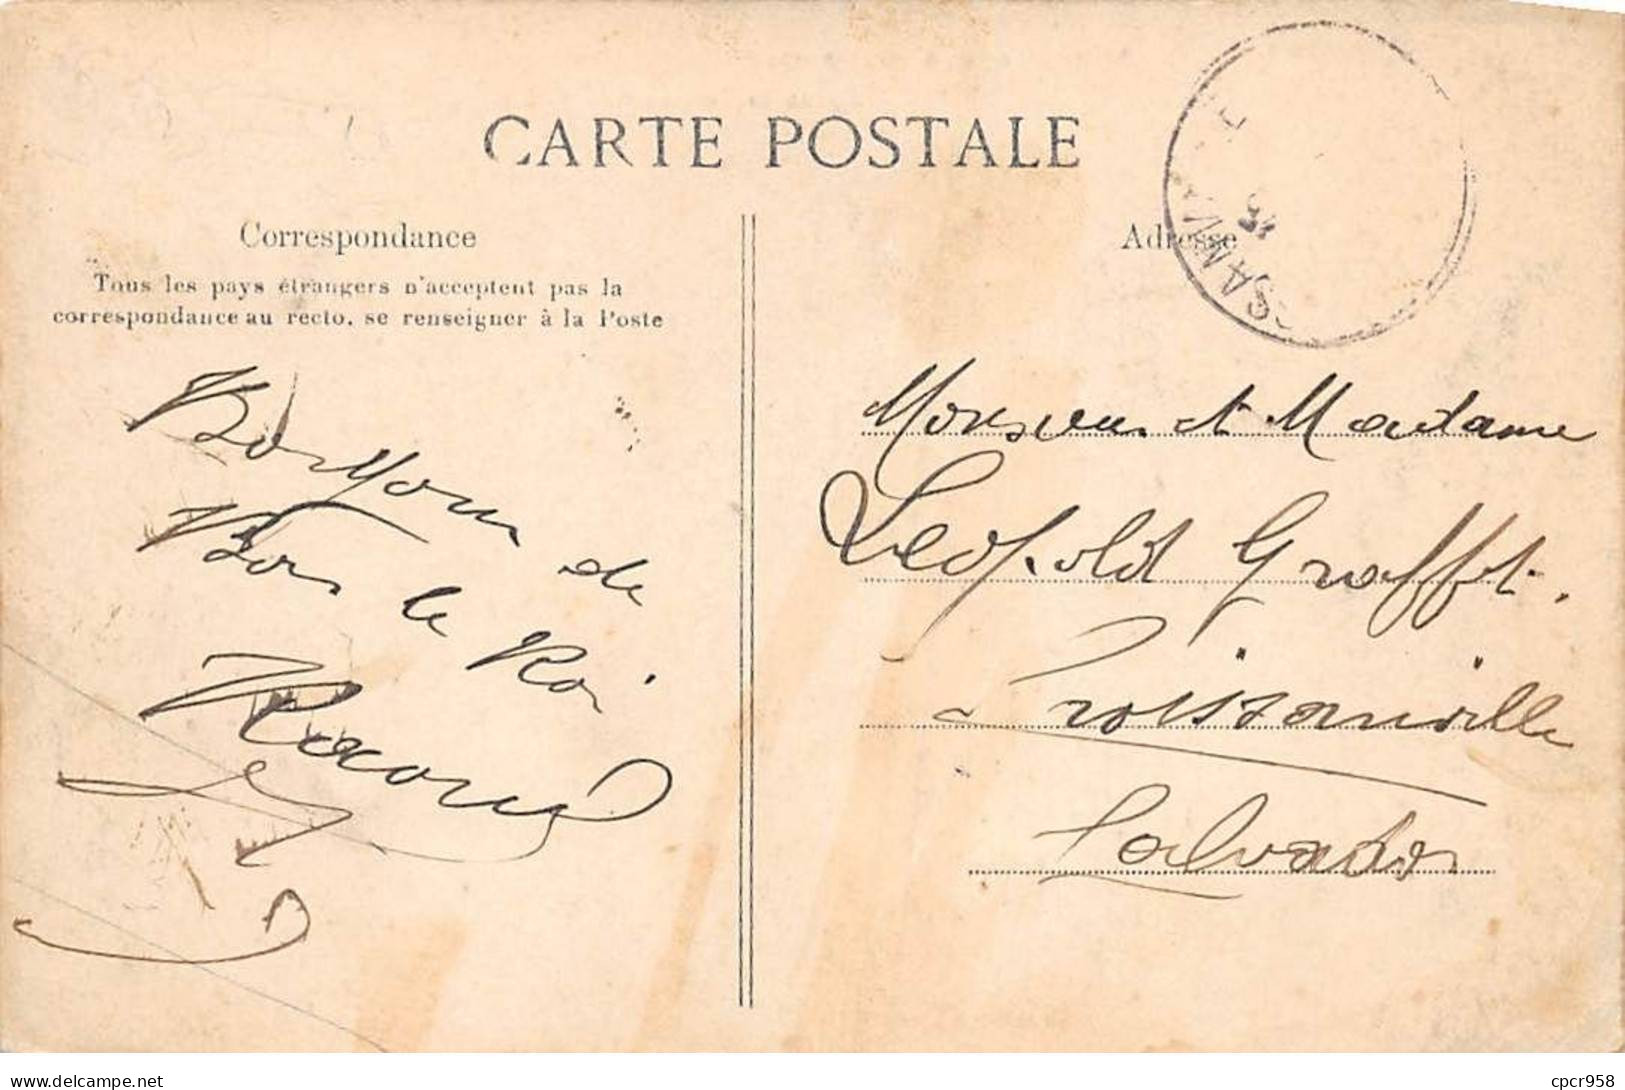 CARTE POSTALE
Correspondance
Tous les pays étrangers n'acceptent pas la
correspondance au recto, se renseigner à la Poste
Bonjour de
Bon le Roi
Raoul
Adresse
SSANV
Monsieur et Madame
Leopold Grafft.
à Croissanville
Calvados
cpcr958